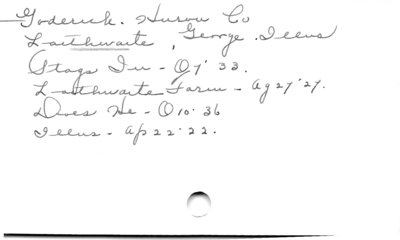 Goderich. Huron Co
Laithwaite, George. Illus
Stags In - O 7' 33.
Laithwaite Farm - Ag 27 '27.
Does He - O 10 · 36
Illus - Ap 22 · 22.